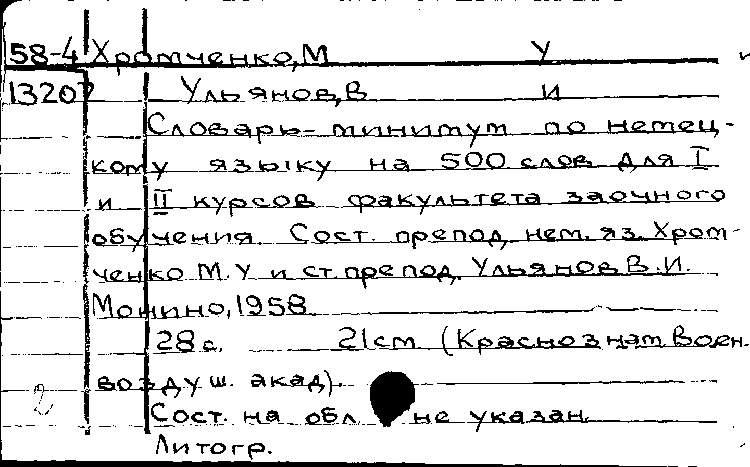 58-4 Хромченко, М У
13207 Ульянов, В И
Словарь-минимум по немец-
кому языку на 500 слов для I
и II курсов факультета заочного
обучения. Сост. препод. нем. яз. Хром-
ченко М.У и ст. препод. Ульянов В.И.
Монино, 1958
28 с. 21 см (Краснознам Воен.
воздуш. акад).
2 Сост. на обл не указан.
Литогр.